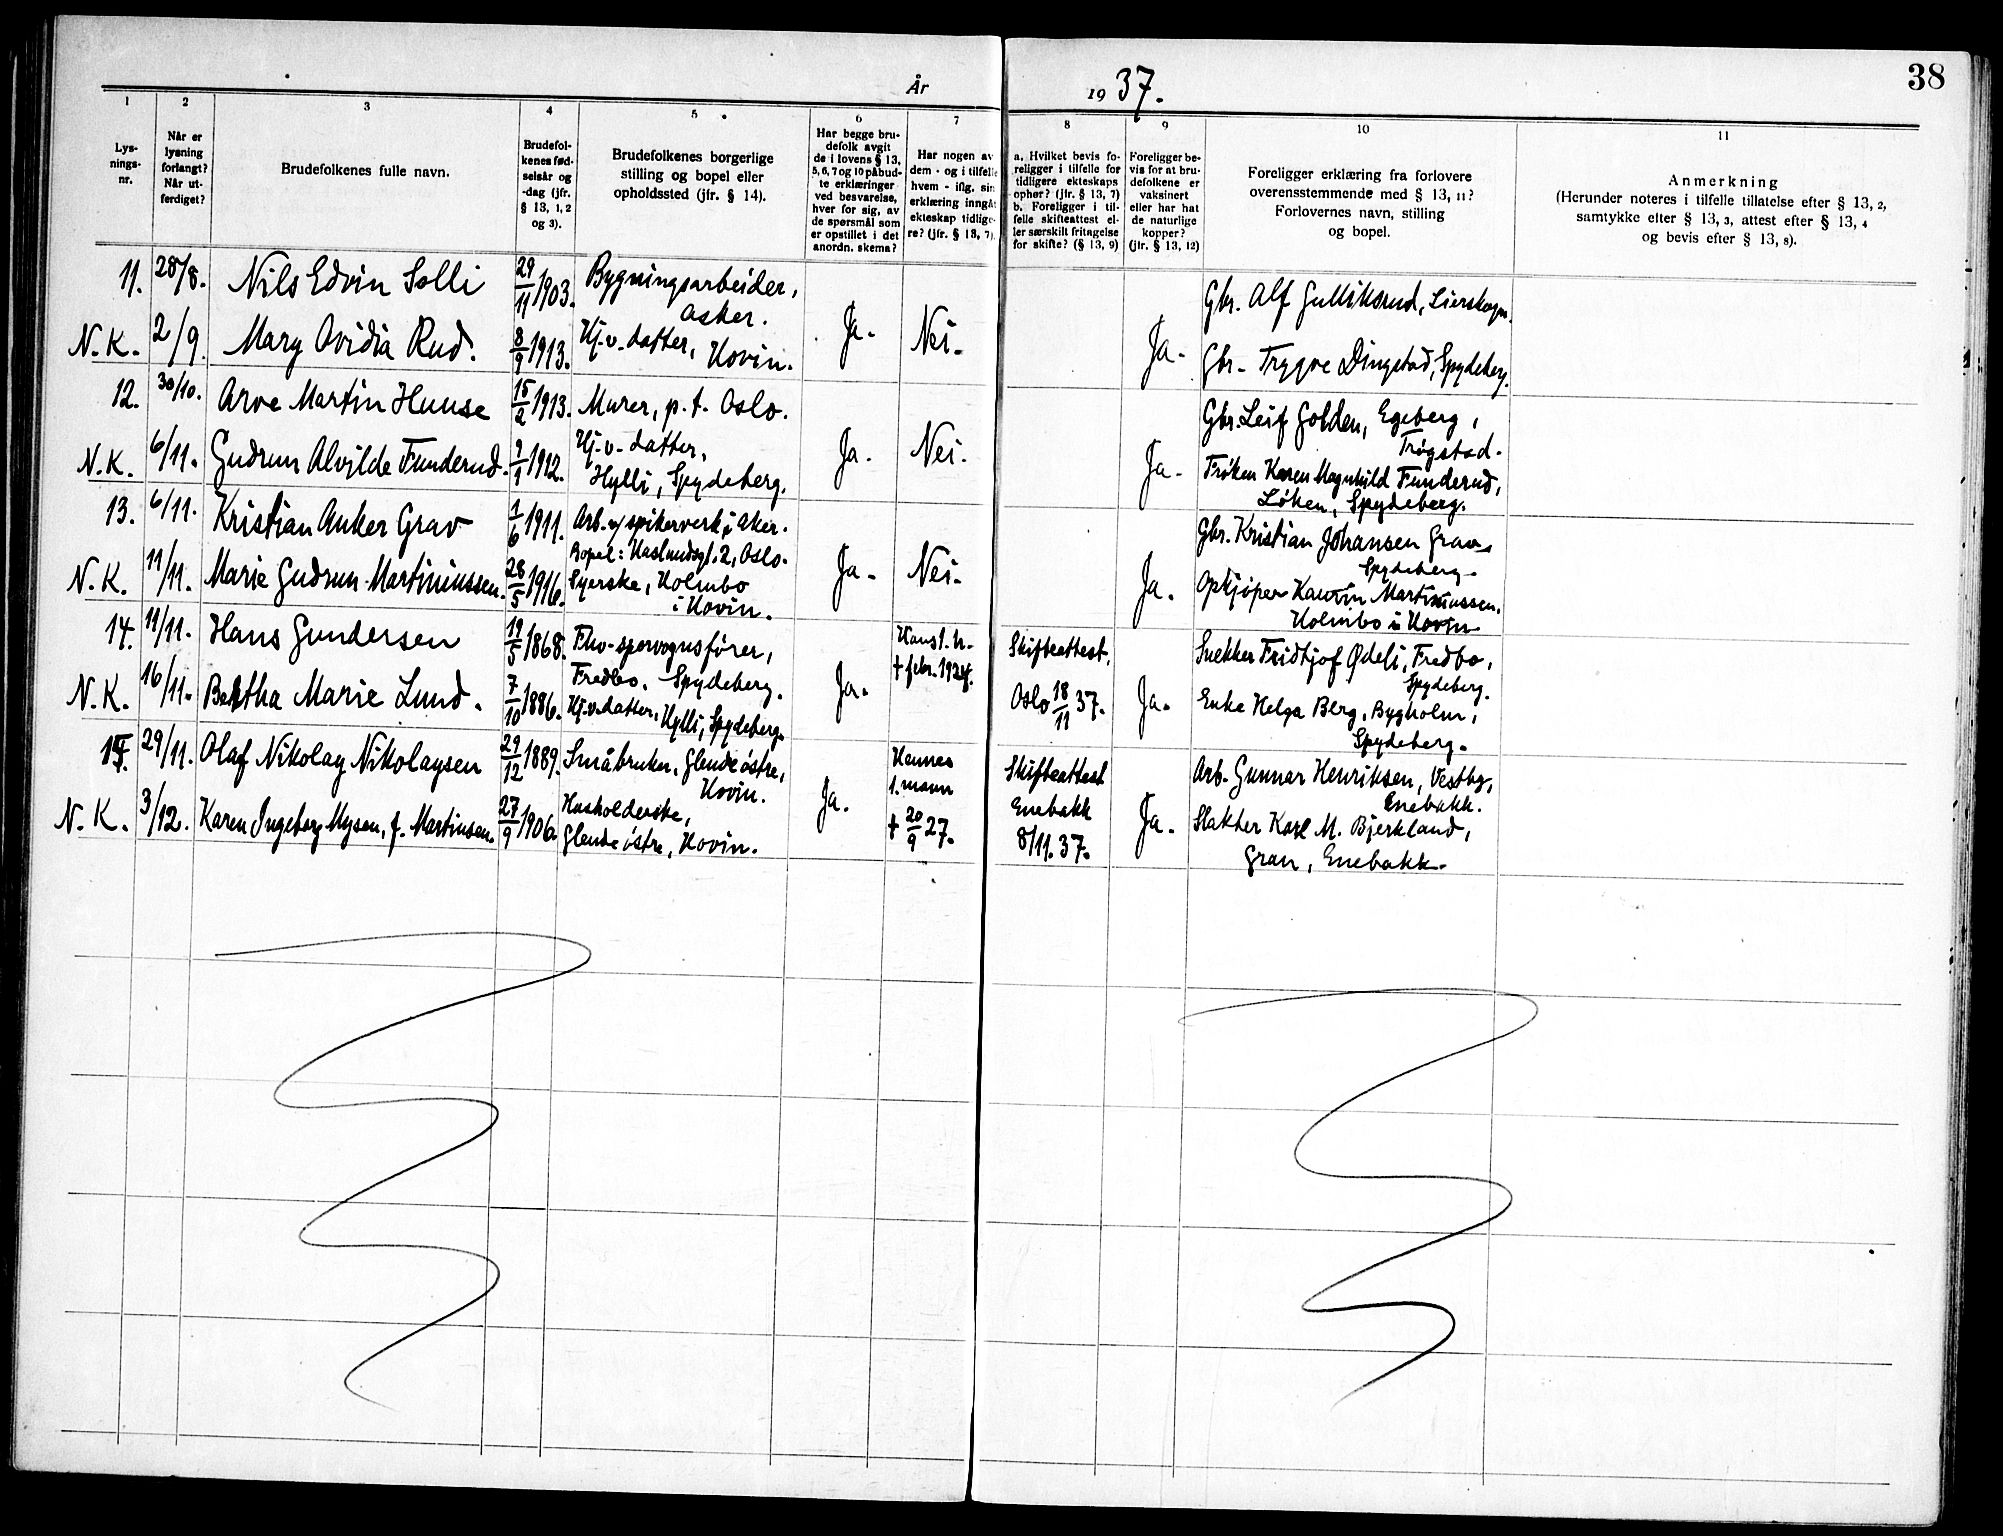 38
År 1937.
1
2
3
4
5
6
7
8
9
10
11
Lys-
nings-
nr.
Når er
lysning
forlangt?
Når ut-
ferdiget?
Brudefolkenes fulle navn.
Brudefol-
kenes fød-
selsår og
-dag (jfr.
§ 13, 1, 2
og 3).
Brudefolkenes borgerlige
stilling og bopel eller
opholdssted (jfr. § 14).
Har begge bru-
defolk avgit
de i lovens § 13,
5, 6, 7 og 10 påbud-
te erklæringer
ved besvarelse,
hver for sig, av
de spørsmål som
er opstillet i det
anordn. skema?
Har nogen av
dem - og i tilfelle
hvem - iflg. sin
erklæring inngå
ekteskap tidlige-
re? (jfr. § 13, 7).
a. Hvilket bevis fo-
religger i tilfelle for
tidligere ekteskaps
ophør? (jfr. § 13, 7)
b. Foreligger i til-
felle skifteattest el-
ler særskilt fritagelse
for skifte? (§ 13, 9)
Foreligger be-
vis for at bru-
defolkene er
vaksinert
eller har hat
de naturlige
kopper?
(jfr. § 13, 12)
Foreligger erklæring fra forlovere
overensstemmende med § 13, 11?
Forlovernes navn, stilling
og bopel.
Anmerkning
(Herunder noteres i tilfelle tillatelse efter § 13, 2,
samtykke efter § 13, 3, attest efter § 13, 4
og bevis efter § 13, 8).
11. 28/8. Nils Edvin Solli 29/11 1903. Bygningsarbeider,
Asker.
Gbr. Alf Gulliksrud, Lierskogn.
N.K. 2/9. Mary Ovidia Rud. 8/9 1913. Hj.v. datter, Hovin. Ja. Nei. Ja.
Gbr. Trygve Dingstad, Spydeberg.
12. 30/10. Arve Martin Huuse 15/2 1913. Murer, p.t. Oslo.
Gbr. Leif Golden, Egeberg,
Trøgstad.
N.K. 6/11. Gudrun Alvilde Funderud. 7/1 1912. Hj.v. datter,
Hylli, Spydeberg. Ja. Nei. Ja.
Frøken Karen Magnhild Funderud,
Løken, Spydeberg.
13. 6/11. Kristian Anker Grav 1/6 1911. Arb. v/ spikerverk i Aker.
Bopel: Haslundsgt. 2, Oslo.
Gbr. Kristian Johansen Grav
Spydeberg.
N.K. 11/11. Marie Gudrun Martiniussen. 28/5 1916. Syerske, Holmbo
i Hovin. Ja. Nei. Ja.
Opkjøper Kaurin Martiniussen.
Holmbo i Hovin
14. 11/11. Hans Gundersen 19/5 1868. Fhv. sporvognsfører,
Fredbo. Spydeberg.
Hans 1. h.
† febr. 1924.
Skifteattest,
Oslo 18/11 37.
Snekker Fridtjof Ødeli, Fredbo,
Spydeberg.
N.K. 16/11. Bertha Marie Lund. 7/10 1886. Hj.v. datter, Hylli, Spydeberg. Ja. Ja.
Enke Helga Berg, Bygholm,
Spydeberg.
15. 29/11. Olaf Nikolay Nikolaysen 29/12 1889. Småbruker, Glende østre,
Hovin.
Hennes
1. mann
† 20/9 27.
Skifteattest
Enebakk
8/11. 37.
Arb. Gunnar Henriksen, Vestby,
Enebakk.
N.K. 3/12. Karen Ingeborg Mysen, f. Martinsen. 27/9 1906. Husholderske,
Glende østre, Hovin. Ja. Ja.
Slakter Karl M. Bjerkland,
Gran, Enebakk.